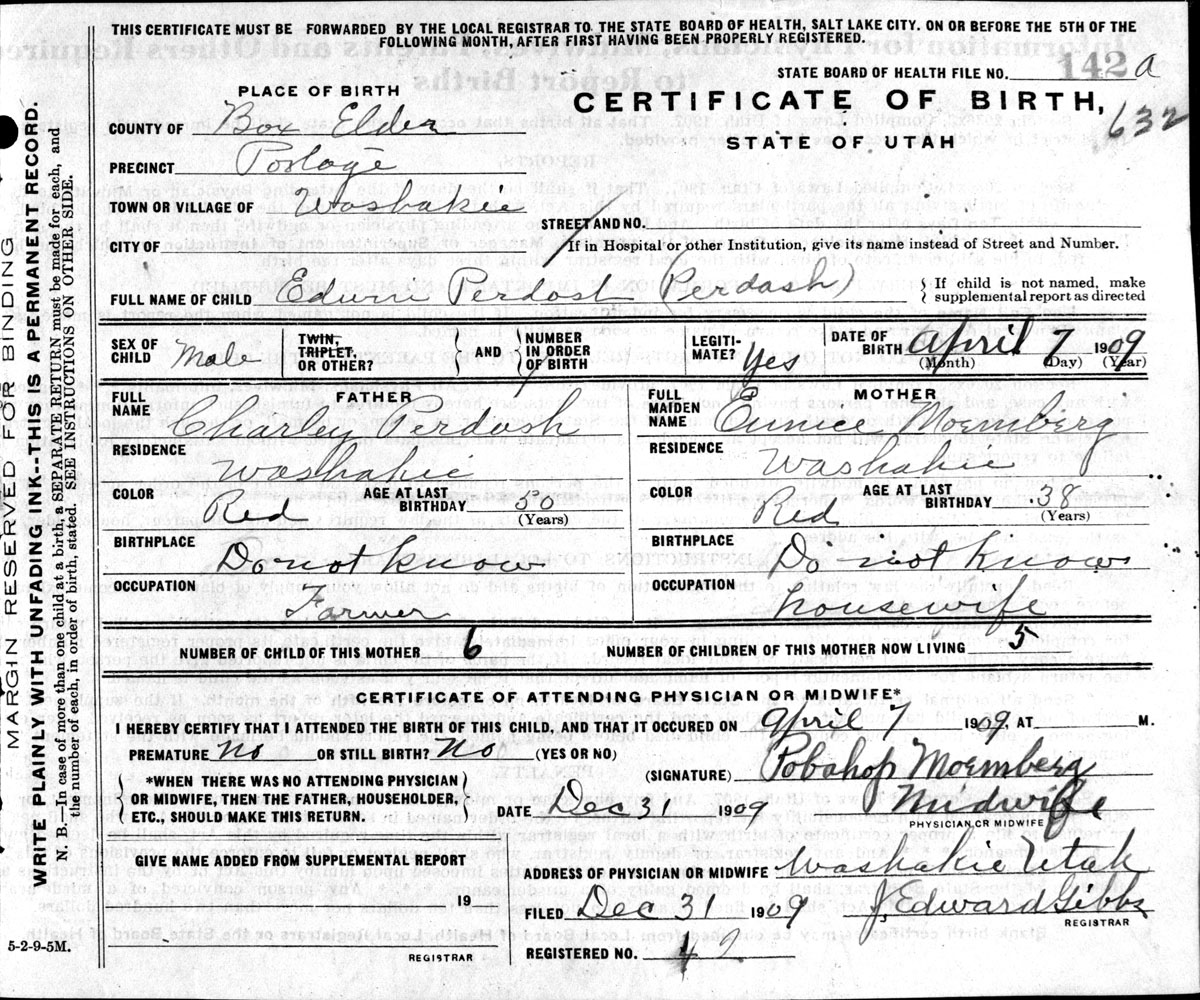 THIS CERTIFICATE MUST BE FORWARDED BY THE LOCAL REGISTRAR TO THE STATE BOARD OF HEALTH, SALT LAKE CITY. ON OR BEFORE THE 5TH OF THE
FOLLOWING MONTH, AFTER FIRST HAVING BEEN PROPERLY REGISTERED.
STATE BOARD OF HEALTH FILE NO. 142 a
PLACE OF BIRTH
CERTIFICATE OF BIRTH,
632
COUNTY OF Box Elder
STATE OF UTAH
PRECINCT Portage
TOWN OR VILLAGE OF Washakie
STREET AND NO.
CITY OF
If in Hospital or other Institution, give its name instead of Street and Number.
FULL NAME OF CHILD Edwin Perdost (Perdash)
{ If child is not named, make
supplemental report as directed
SEX OF CHILD Male
TWIN, TRIPLET, OR OTHER? } AND { NUMBER IN ORDER OF BIRTH
LEGITI-MATE? Yes
DATE OF BIRTH April 7 1909
(Month) (Day) (Year)
FATHER
FULL NAME Charley Perdash
RESIDENCE Washakie
COLOR Red AGE AT LAST BIRTHDAY 50 (Years)
BIRTHPLACE Do not know
OCCUPATION Farmer
MOTHER
FULL MAIDEN NAME Eunice Moemberg
RESIDENCE Washakie
COLOR Red AGE AT LAST BIRTHDAY 38 (Years)
BIRTHPLACE Do not know
OCCUPATION housewife
NUMBER OF CHILD OF THIS MOTHER 6 NUMBER OF CHILDREN OF THIS MOTHER NOW LIVING 5
CERTIFICATE OF ATTENDING PHYSICIAN OR MIDWIFE*
I HEREBY CERTIFY THAT I ATTENDED THE BIRTH OF THIS CHILD AND THAT IT OCCURED ON April 7 1909, AT M.
PREMATURE No OR STILL BIRTH? No (YES OR NO)
(SIGNATURE) Pobahop Moemberg
{ *WHEN THERE WAS NO ATTENDING PHYSICIAN
OR MIDWIFE, THEN THE FATHER, HOUSEHOLDER,
ETC., SHOULD MAKE THIS RETURN. }
Dec 31 1909 Midwife
PHYSICIAN OR MIDWIFE
GIVE NAME ADDED FROM SUPPLEMENTAL REPORT
19
REGISTRAR
ADDRESS OF PHYSICIAN OR MIDWIFE Washakie Utah
FILED Dec 31 1909 J. Edward Gibbs
REGISTRAR
REGISTERED NO. 42
5-2-9-5M.
MARGIN RESERVED FOR BINDING
WRITE PLAINLY WITH UNFADING INK--THIS IS A PERMANENT RECORD.
N. B.—In case of more than one child at a birth, a SEPARATE RETURN must be made for each, and
the number of each, in order of birth, stated. SEE INSTRUCTIONS ON OTHER SIDE.